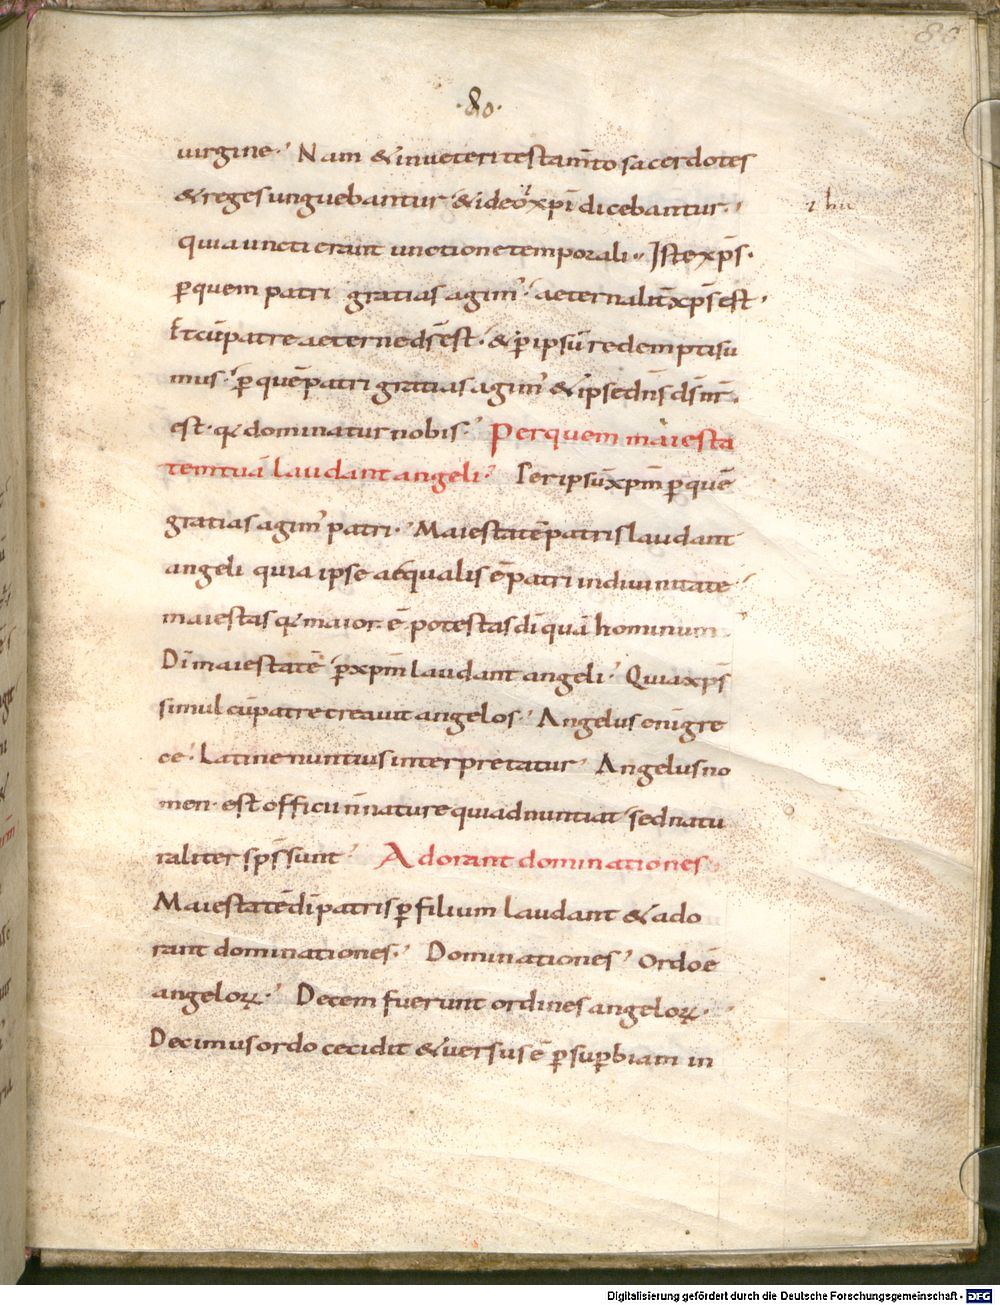 86
·80·
uirgine·' Nam & inueteri testam̄to sacerdotes
& reges unguebantur· & ideo xp̄i dicebantur·'
quia uncti erant unctione temporali·, Iste xp̄s·
ꝑ quem patri gratias agim' · aeternalit̄ xp̄s est·'
Et cū patre aeterne ds̄ est· & ꝑ ipsū redempti su
mus·' ꝑ quē patri gratias agim' & ipse dn̄s ds̄ nr̄·
est· q; dominatur nobis·' Per quem maiesta
tem tuā laudant angeli·' Per ipsū xp̄m ꝑ quē
gratias agim' patri·' Maiestatē patris laudant
angeli quia ipse aequalis ē patri indiuinitate·'
maiestas q; maior· ē potestas dī quā hominum·
Dī maiestatē ꝑ xp̄m laudant angeli·' Quia xp̄s
simul cū patre creauit angelos·' Angelus eni gre
ce· Latine nuntius interpretatur·' Angelus no
men· est officii n̄ nature quia dnuntiat· sed natu
raliter sp̄s sunt·' Adorant dominationes·
Maiestatē dī patris ꝑ filium laudant & ado
rant dominationes·' Dominationes·' Ordo ē
angeloꝝ·' Decem fuerunt ordines angeloꝝ·'
Decimus ordo cecidit & uersus ē ꝑ suꝑbiam in
Digitalisierung gefördert durch die Deutsche Forschungsgemeinschaft - DFG